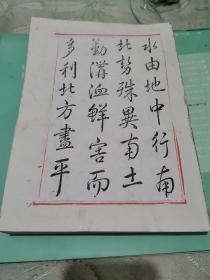 水由地中行南
北势殊異南土
勤溝洫鲜害而
多利北方盡平